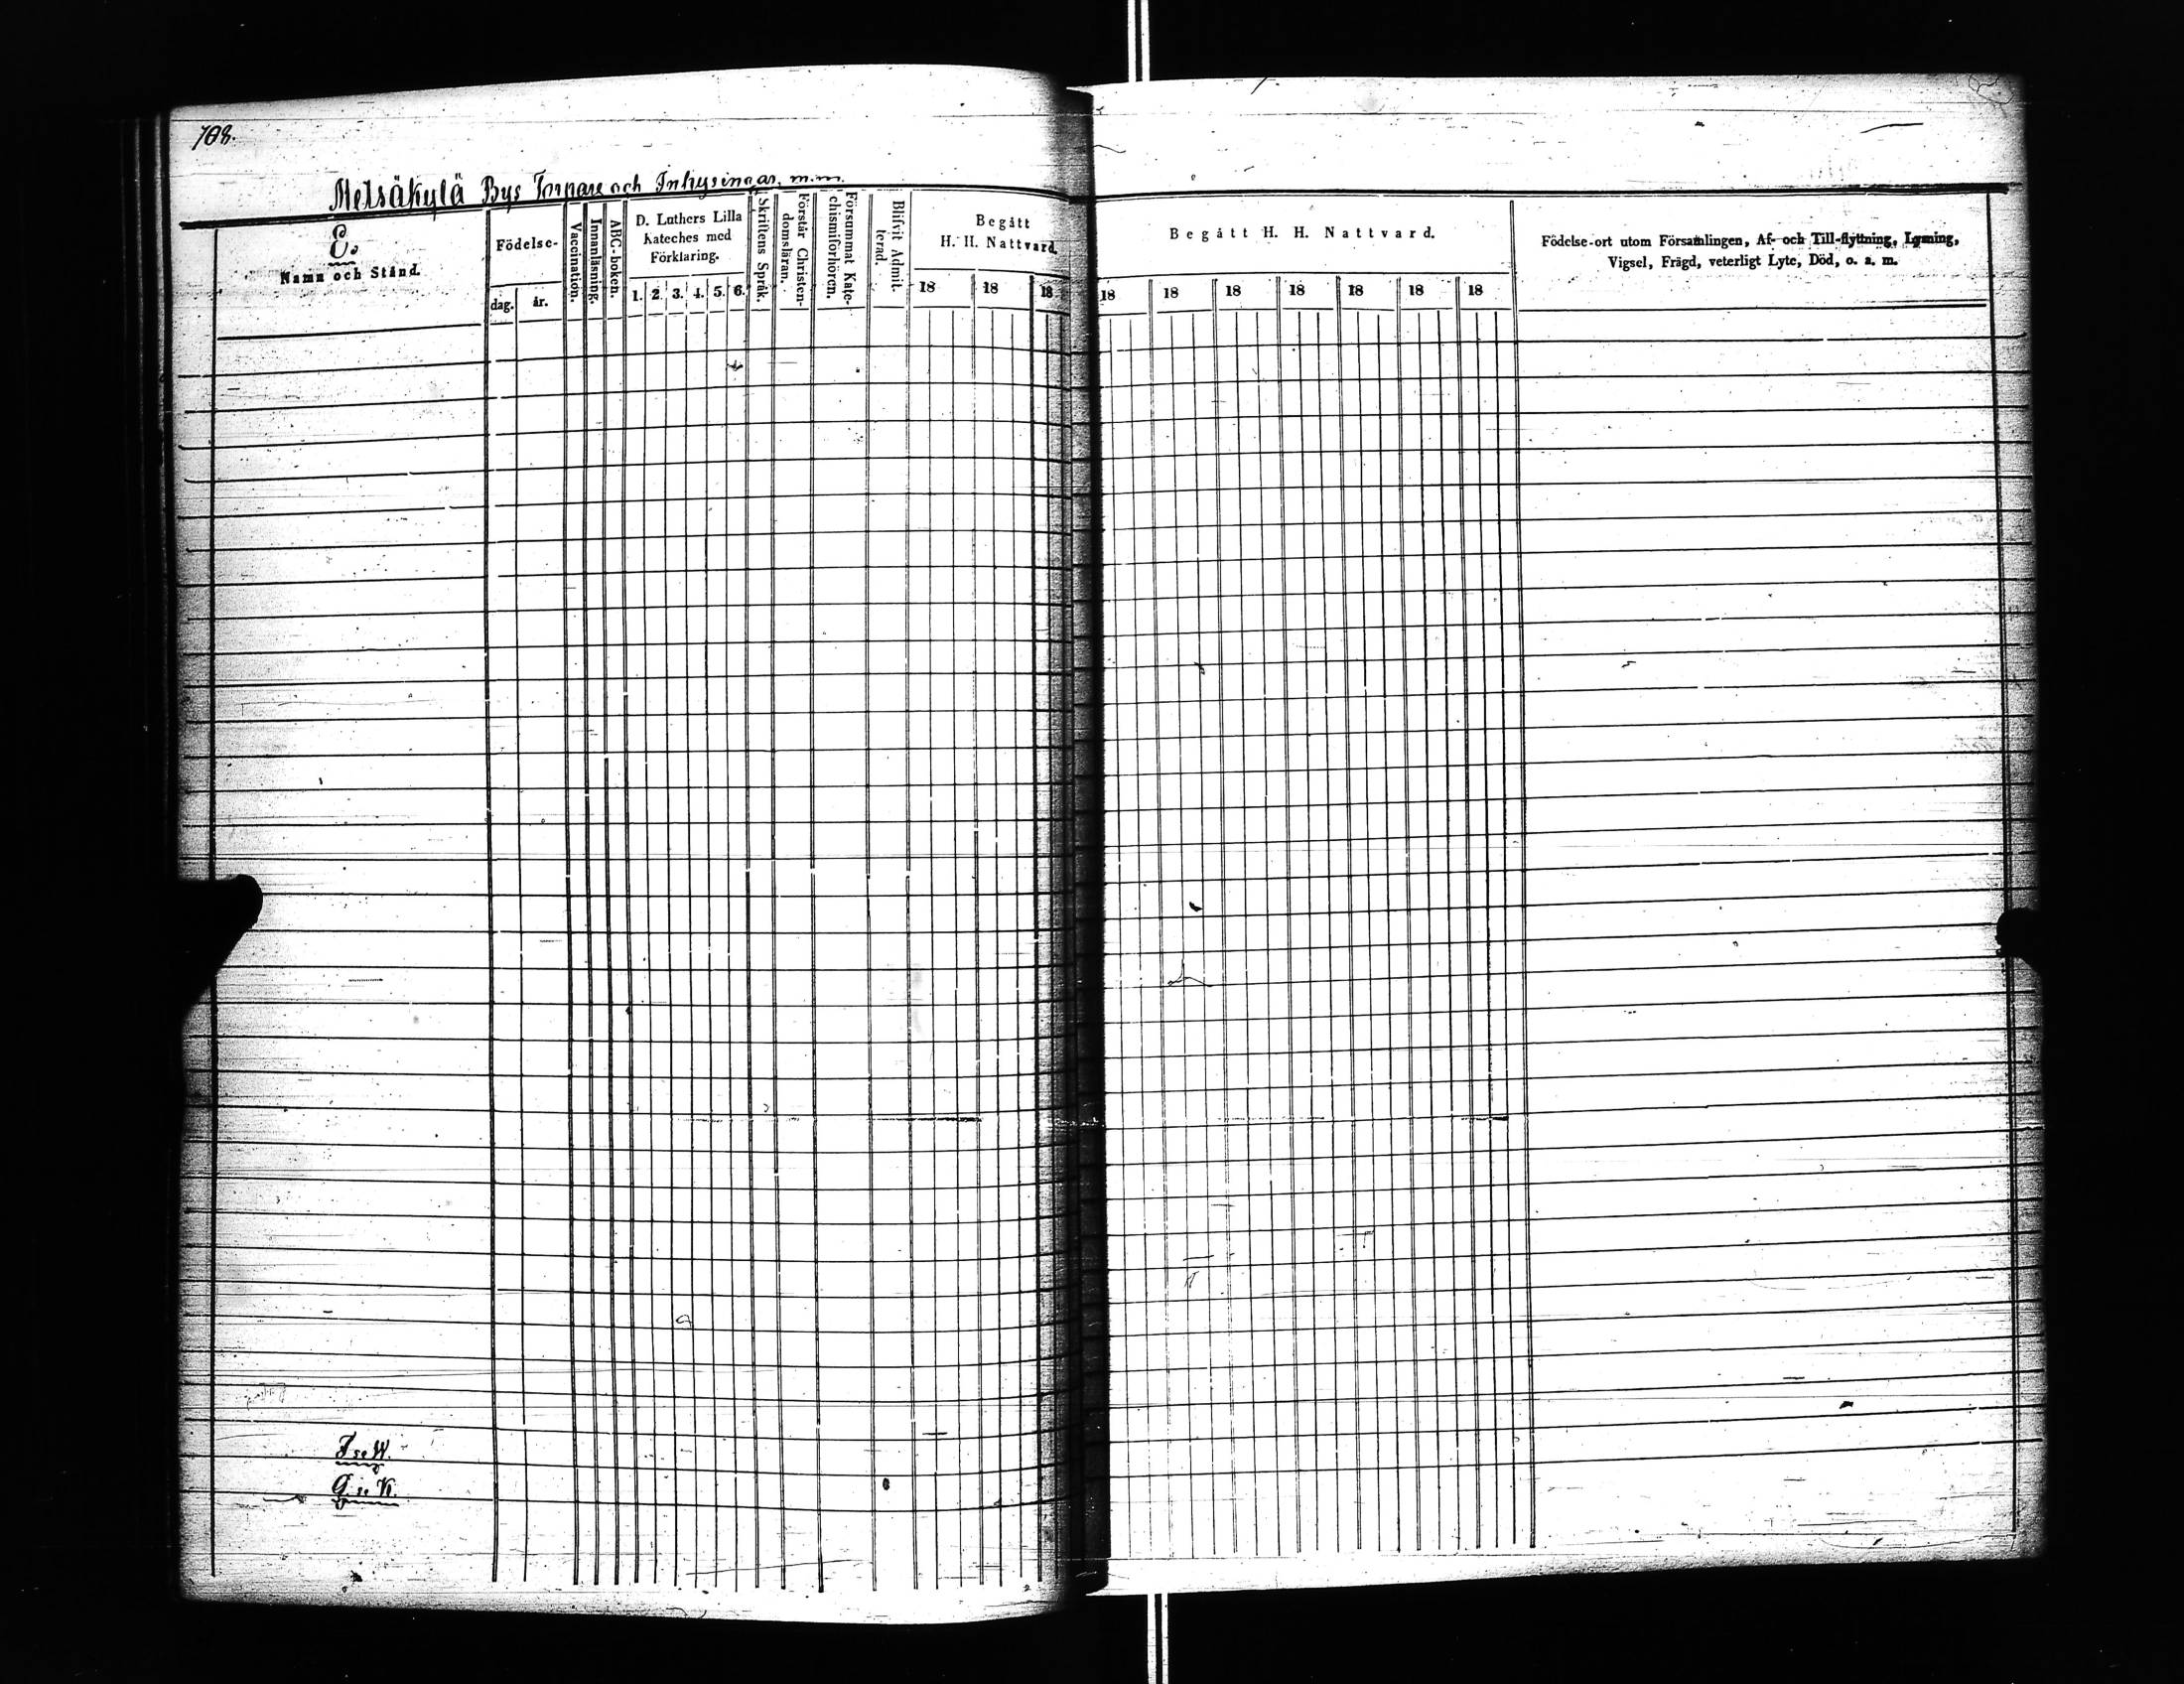 108.
Metsäkylä Bys Torpare och Inhysingar, m.m.
E.
Namn och Stånd.
Födelse-
dag.
år.
Vaccination.
Innanläsning.
ABC-boken.
D. Luthers Lilla
Kateches med
Förklaring.
1. 2. 3. 4. 5. 6.
Skriftens Språk.
Förstår Christen-
domsläran.
Försummat Kate-
chismiförhören.
Blifvit Admit-
terad.
Begått
H. H. Nattvard.
18 18 18
Begått H. H. Nattvard.
18 18 18 18 18 18 18
Födelse-ort utom Församlingen, Af- och Till-flyttning, Lysning,
Vigsel, Frägd, veterligt Lyte, Död, o. s. m.
F. se W.
G. se K.